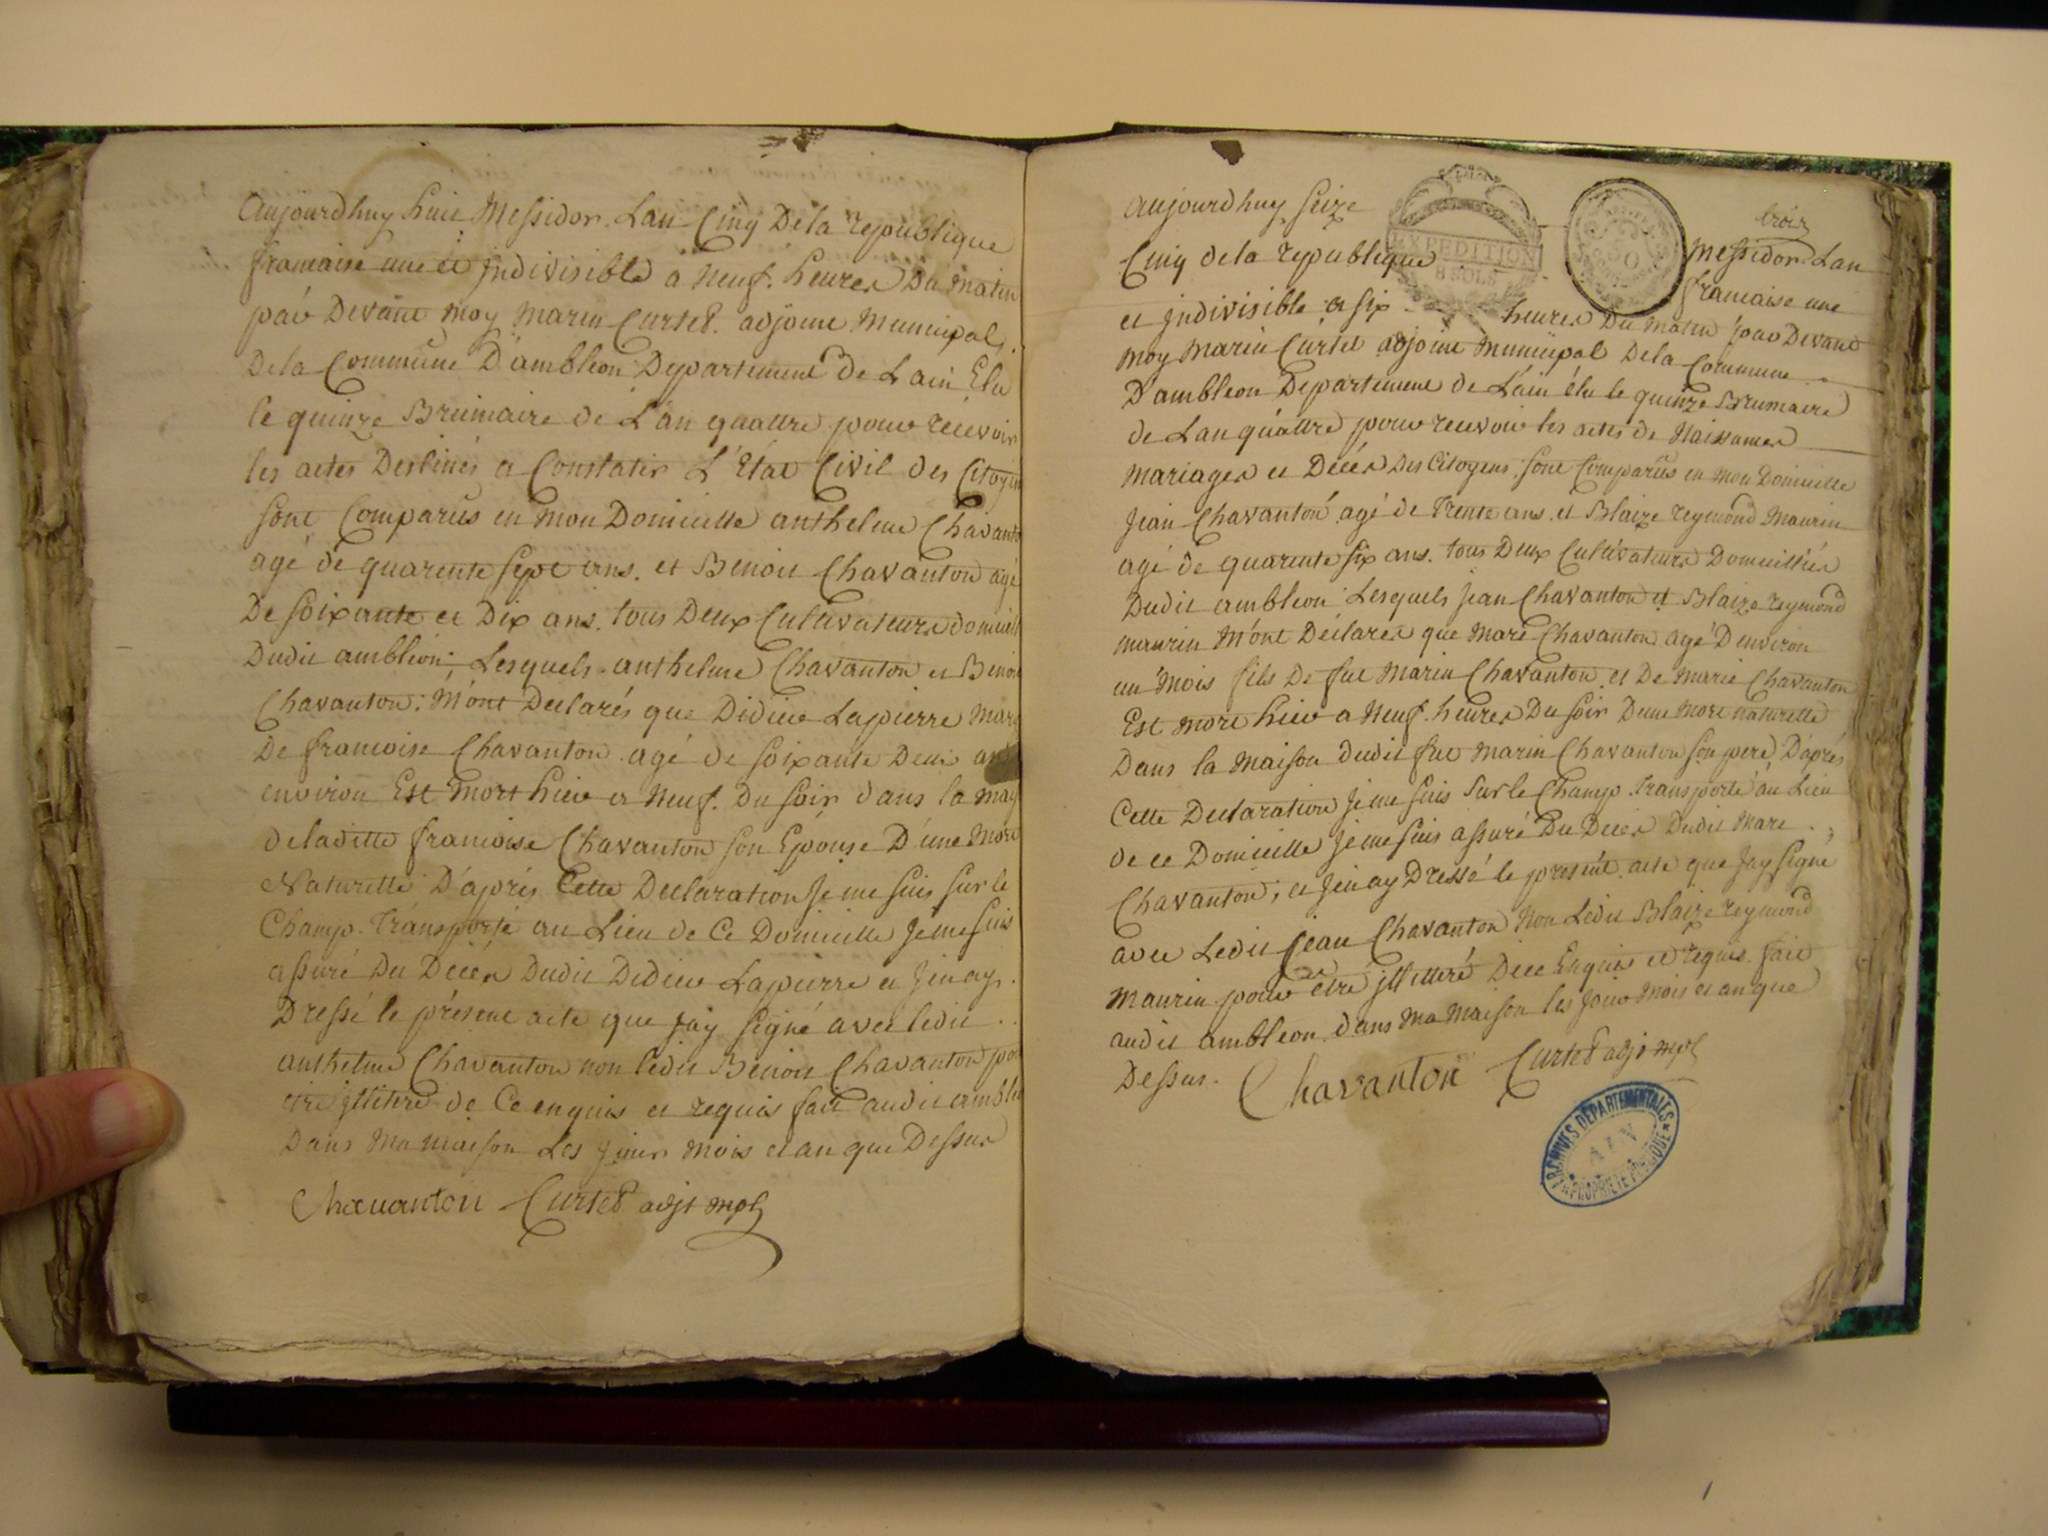 Aujourdhuy huit Messidor Lan Cinq De la republique
francaise une et jndivisible a Neuf heures Du Matin
par Devant moy Marin Curtet adjoint Municipal
De la Commune D'ambleon Departement De Lain Elu
le quinze Brumaire de L'an quattre pour recevoir
les actes Destinés a Constatir L'Etat Civil des Citoyen
sont Comparûs en Mon Domicille anthelme Chavanto
agé de quarente sept ans. et Benoit Chavanton agé
De soixante et Dix ans. tous Deux Cultivateurs domicili
Dudit ambléon; Lesquels anthelme Chavanton et Benoi
Chavanton; M'ont Declarés que Didier Lapierre Mari
De francoise Chavanton agé de soixante Deux ans
environ Est mort hier a Neuf. Du soir dans la may
deladitte francoise Chavanton son Epouse D'une Mort
Naturelle D'aprés Cette Declaration Je me suis sur le
Champ Transporté au Lieu de Ce Domicille Je me suis
assuré Du Décés Dudit Didier Lapierre et Jen ay
Dressé le présent acte que jay signé avec ledit
anthelme Chavanton non ledit Benoit Chavanton pou
etre jllitéré de Ce enquis et requis fait audit amble
Dans Ma maison Les jour mois et an que Dessus
Chavanton Curtet adjt mpl
trois
aujourdhuy seize Messidor Lan
Cinq de la republique francaise une
EXPEDITION
8 SOLS
et jndivisible a six heures Du matin par Devant
moy Marin Curtet adjoint Municipal De la Commune
D'ambleon Departement de L'ain élu le quinze Brumaire
de Lan quattre pour recevoir les actes de Naissances
Mariages et Décés Des Citoyens; sont Comparûs en mon Domicille
Jean Chavanton agé de Trente ans et Blaize reymond Maurin
agé de quarente six ans. tous Deux Cultivateurs Domicilliés
Dudit ambleon Lesquels Jean Chavanton et Blaize reymond
maurin M'ont Déclarés que Marc Chavanton agé D'environ
un mois fils De fut Marin Chavanton et De Marie Chavanton
Est mort hier a Neuf. heures Du soir Dune Mort naturelle
Dans la Maison dudit fut Marin Chavanton son pere D'aprés
Cette Declaration Je me suis sur le Champ Transporté au Lieu
de ce Domicille Je me suis assuré Du Decés Dudit Marc
Chavanton; et Jen ay Dressé le présént acte que Jay signé
avec Ledit Jean Chavanton Non Ledit Blaize reymond
Maurin pour etre jllitteré De ce Enquis et requis fait
audit ambleon dans Ma Maison les Jour Mois et an que
Dessus. Chavanton Curtet adjt mpl
ARCHIVES DÉPARTEMENTALES
AIN
PROPRIÉTÉ PUBLIQUE